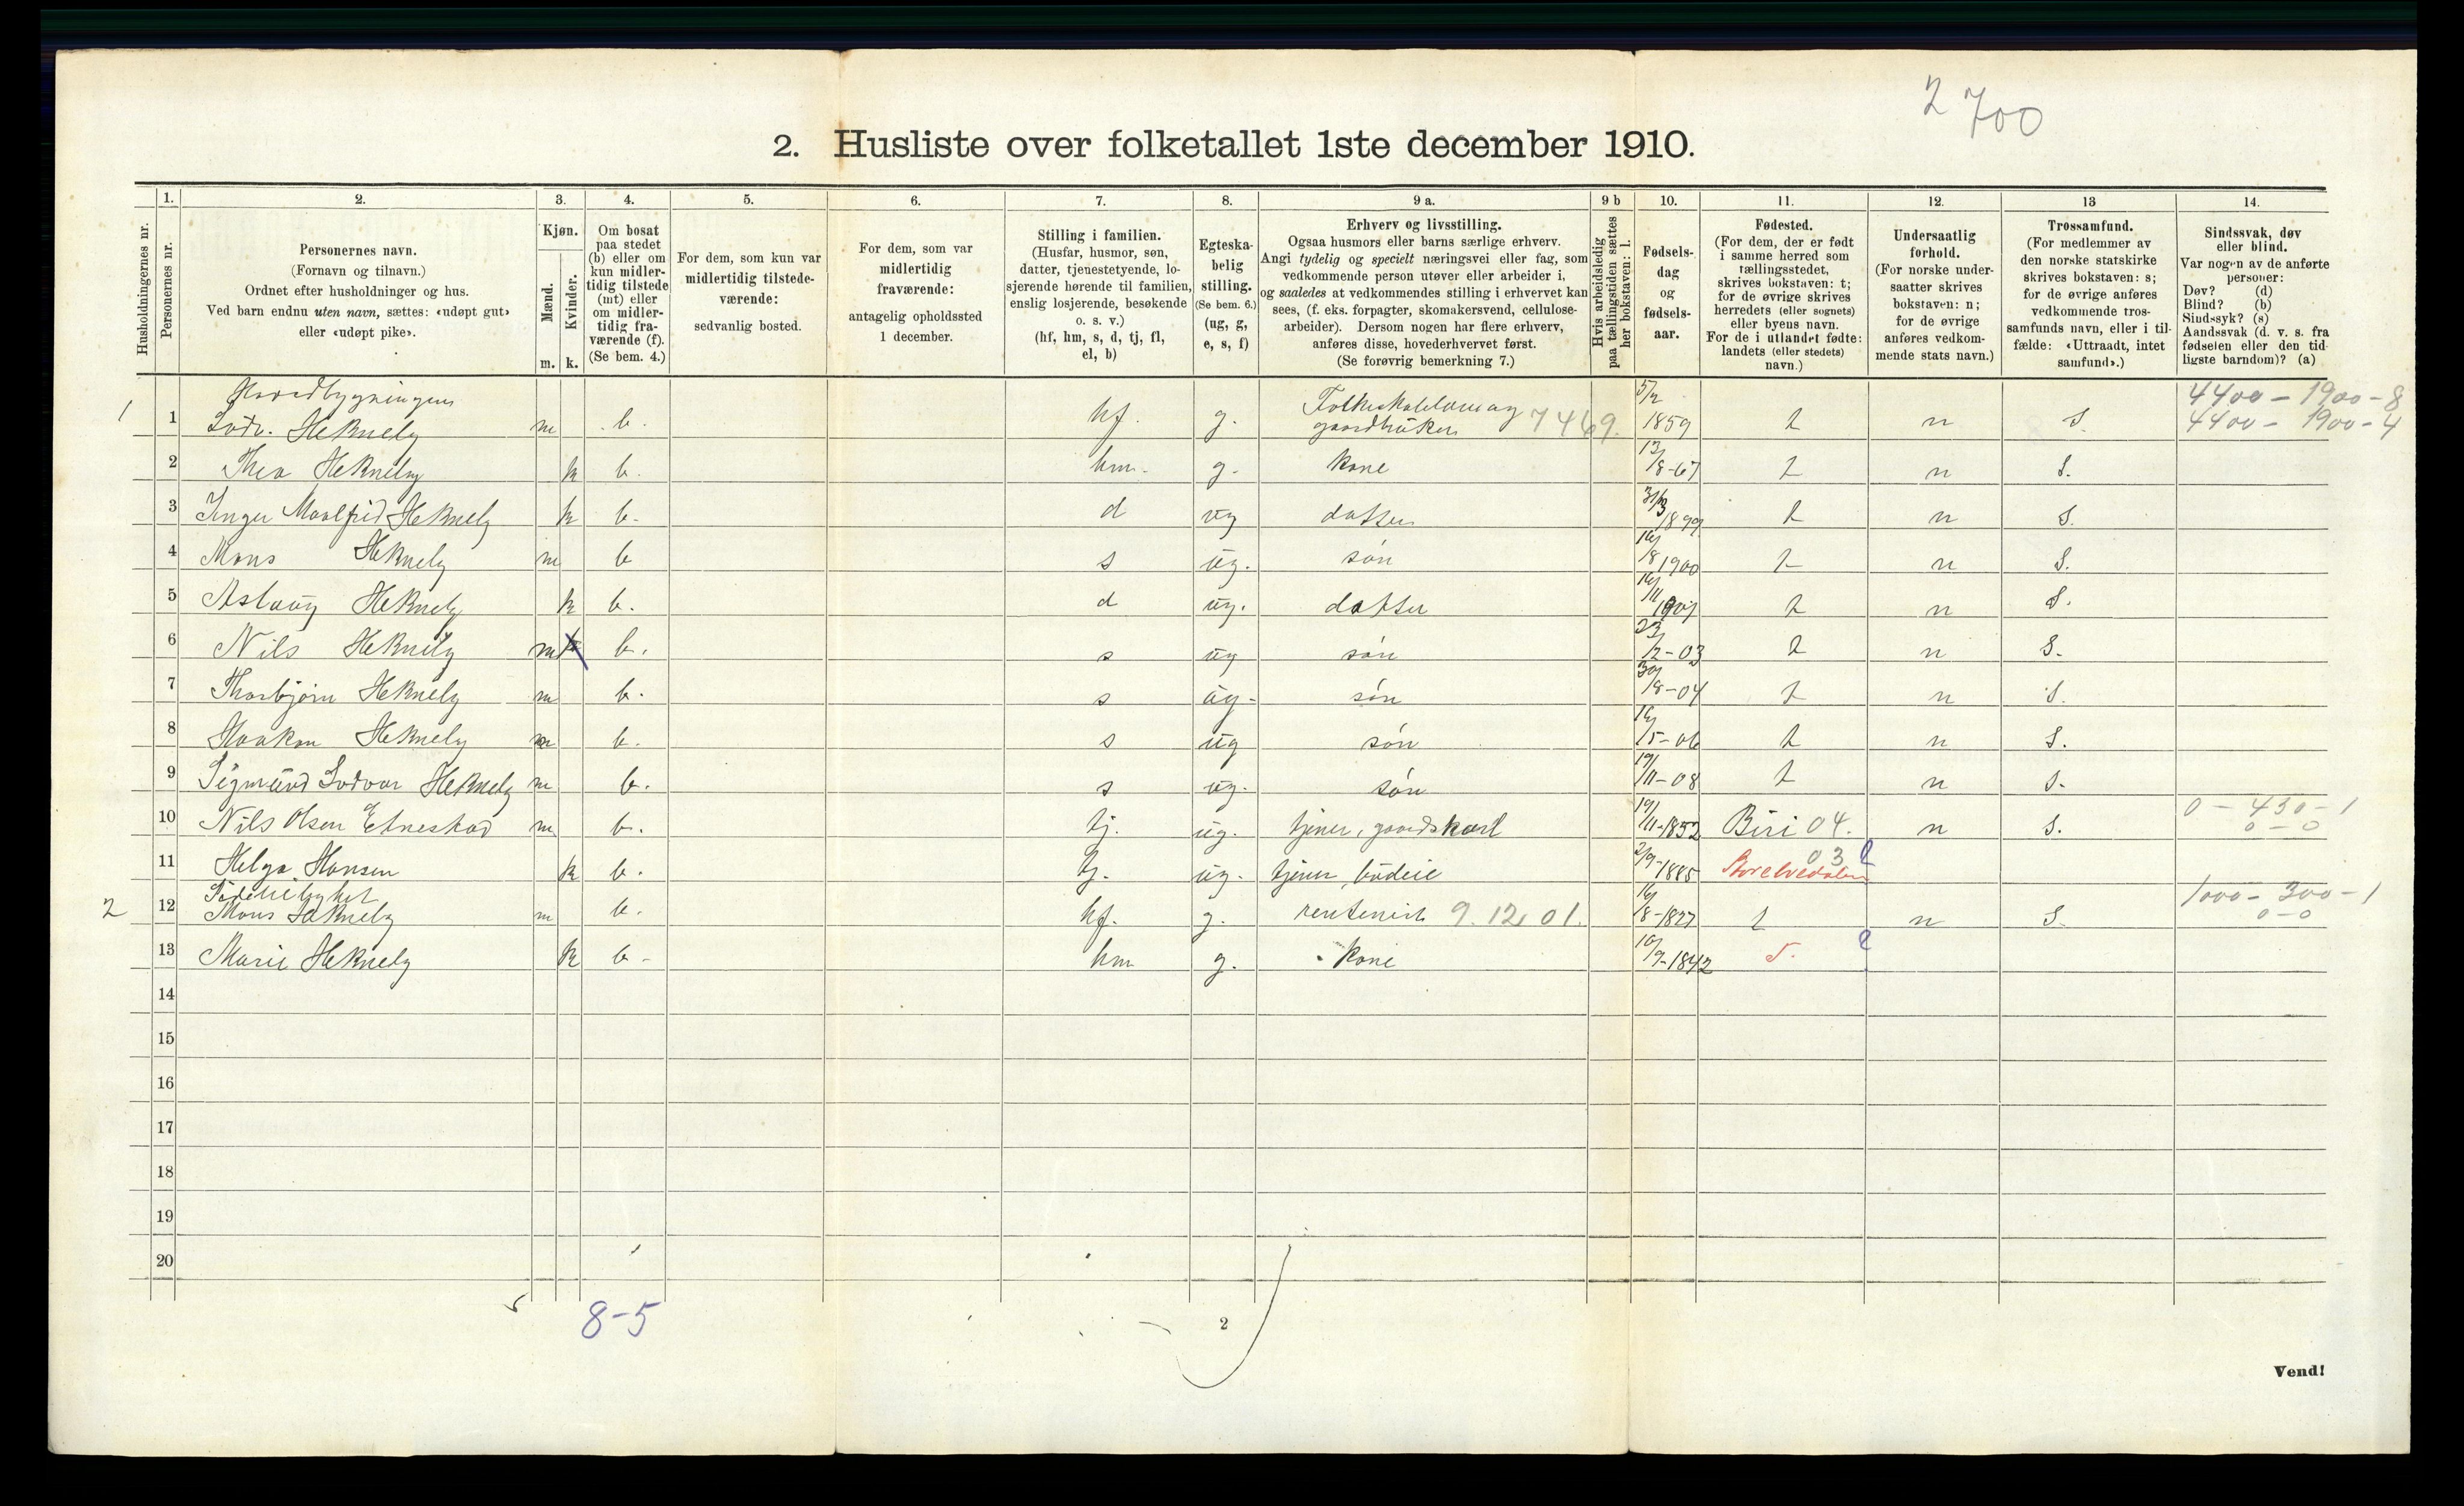 2 700
2. Husliste over folketallet 1ste december 1910.
Husholdningernes nr.
1. Personernes nr.
2. Personernes navn. (Fornavn og tilnavn.) Ordnet efter husholdninger og hus. Ved barn endnu uten navn, sættes: «udøpt gut» eller «udøpt pike».
3. Kjøn. Mænd. m. Kvinder. k.
4. Om bosat paa stedet (b) eller om kun midlertidig tilstede (mt) eller om midlertidig fraværende (f). (Se bem. 4.)
5. For dem, som kun var midlertidig tilstedeværende: sedvanlig bosted.
6. For dem, som var midlertidig fraværende: antagelig opholdssted 1 december.
7. Stilling i familien. (Husfar, husmor, søn, datter, tjenestetyende, losjerende hørende til familien, enslig losjerende, besøkende o. s. v.) (hf, hm, s, d, tj, fl, el, b)
8. Egteskabelig stilling. (Se bem. 6.) (ug, g, e, s, f)
9 a. Erhverv og livsstilling. Ogsaa husmors eller barns særlige erhverv. Angi tydelig og specielt næringsvei eller fag, som vedkommende person utøver eller arbeider i, og saaledes at vedkommendes stilling i erhvervet kan sees, (f. eks. forpagter, skomakersvend, cellulosearbeider). Dersom nogen har flere erhverv, anføres disse, hovederhvervet først. (Se forøvrig bemerkning 7.)
9 b Hvis arbeidsledig paa tællingstiden sættes her bokstaven: l.
10. Fødselsdag og fødselsaar.
11. Fødested. (For dem, der er født i samme herred som tællingsstedet, skrives bokstaven: t; for de øvrige skrives herredets (eller sognets) eller byens navn. For de i utlandet fødte: landets (eller stedets) navn.)
12. Undersaatlig forhold. (For norske undersaatter skrives bokstaven: n; for de øvrige anføres vedkommende stats navn.)
13 Trossamfund. (For medlemmer av den norske statskirke skrives bokstaven: s; for de øvrige anføres vedkommende trossamfunds navn, eller i tilfælde: «Uttraadt, intet samfund».)
14. Sindssvak, døv eller blind. Var nogen av de anførte personer: Døv? (d) Blind? (b) Sindssyk? (s) Aandssvak (d. v. s. fra fødselen eller den tidligste barndom)? (a)
Hovedbygningen 4400 - 1900 - 8
1 1 Lodv. Heknely m b. hf. g. gaardbruker 7469. 5/2 1859 t n s. 4400 - 1900 - 4
2 Thea Heknely k b. hm. g. kone 13/8-67 t n s.
3 Inger Maalfrid Heknely k b. d ug datter 31/3 1899 t n s.
4 Mons Heknely m b s ug. søn 16/8 1900 t n s.
5 Aslaug Heknely k b. d ug. datter 16/11 1901 t n s.
6 Nils Heknely m b. s ug søn 23/2-03 t n s.
7 Thorbjørn Heknely m b. s ug- søn 30/8-04 t n s.
8 Haakon Heknely m b. s ug søn 16/5-06 t n s.
9 Sigmund Lodvar Heknely m b. s ug. søn 19/11-08 t n s.
10 Nils Olsen Etnestad m b. tj. ug. tjener, gaardskarl 19/11-1852 Biri 04. n s. 0 - 430 - 1 0 - 0
11 Helga Hansen k b. tj. ug. tjener, budeie 2/9-1885 Storelvedalen 03
2 12 Mons Heknely m b. hf. g. rentenist 9.12.01. 16/8-1827 t n s. 1000 - 300 - 1 0 - 0
13 Marie Heknely k b- hm g. kone 10/9-1842
14
15
16
17
18
19
20
8-5
2
Vend!